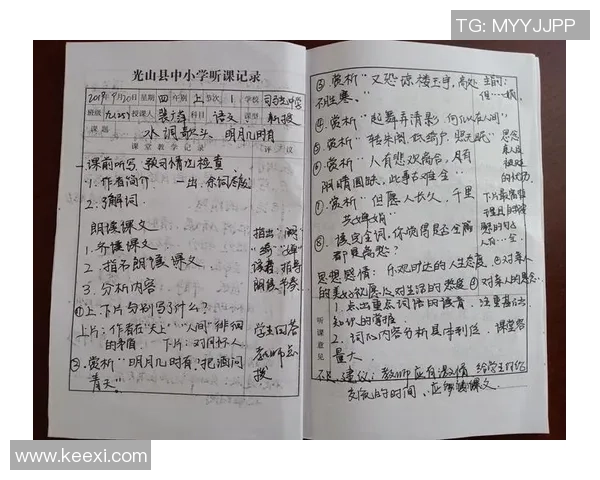 TG: MYYJJPP
光山县中小学听课记录
2019年9月20日 星期 四 年 上 节次 1 学校
班级 九(25) 授课人 科目 语文 课型 新授
课题 水调歌头·明月几时有
课堂教学记录 评议
一课前听写、预习情况检查
1. 作者简介
2. 了解词
朗读课文
1. 齐读课文
2. 指名朗读课文
读音,指导
3. 分析内容
朗读节奏
①上、下片分别写了什么?
上片:作者在"天上""人间"徘徊 学生回答
的矛盾. 下片:对月怀人 教师点
②. 赏析"明月几时有,把酒问 拨
青天"
③. 赏析"又恐琼楼玉宇,高处
不胜寒。"
④. 赏析"起舞弄清影,何似在人间"
⑤. 赏析"转朱阁,低绮户,照无眠" 思念
⑥ 赏析"人有悲欢离合,月有
阴晴圆缺,此事古难全"
⑦. 赏析"但愿人长久,千里
共婵娟" 下片最富哲
⑧. 读完全词,你觉得是否全篇
都是离愁? 人有…全.
思想感情: 乐观旷达的人生态度 ②对亲人
的美好祝愿 ③对生活的热爱 ④对亲人的思念.
听课意见
1. 点出重点词语的读音 注重基础
知识的掌握
2. 词的内容分析具体到位. 课堂容
量大.
建议:教师应有激情 给学生
交流的时间、应 课文.
www.keexi.com